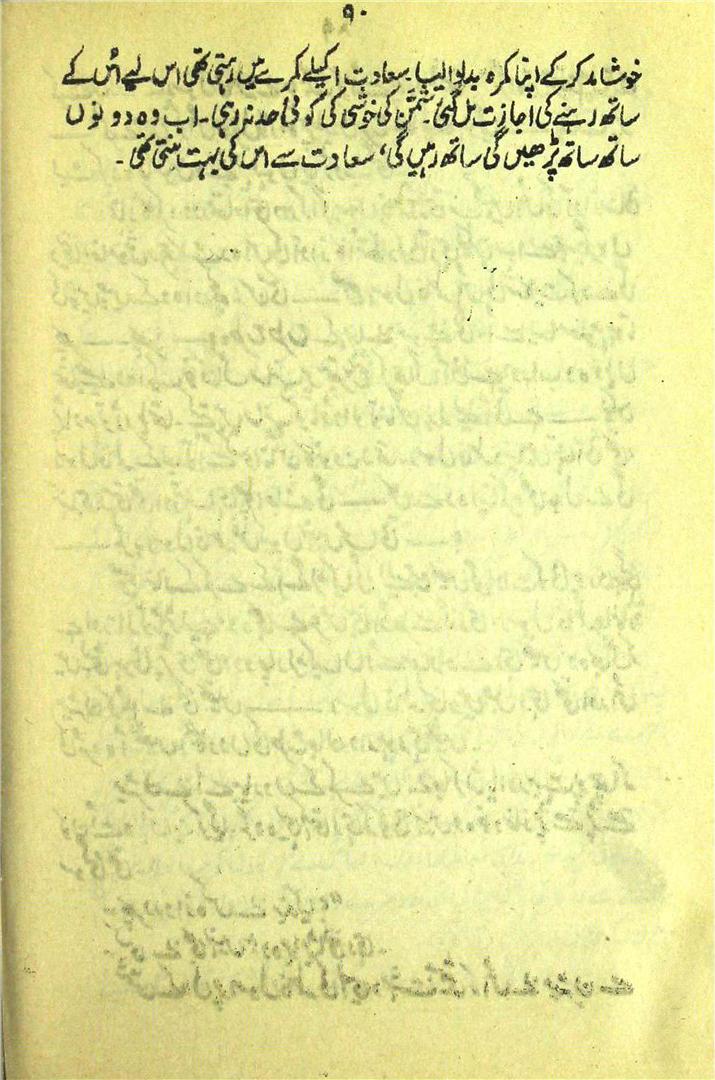 ۹۰
خوشامد کر کے اپنا کمرہ بدلوا لیا۔ سعادت اکیلے کمرے میں رہتی تھی اس لیے اُس کے
ساتھ رہنے کی اجازت مل گئی۔ شمّن کی خوشی کی کوئی حد نہ رہی۔ اب وہ دونوں
ساتھ ساتھ پڑھیں گی ساتھ رہیں گی، سعادت سے اس کی بہت بنتی تھی۔